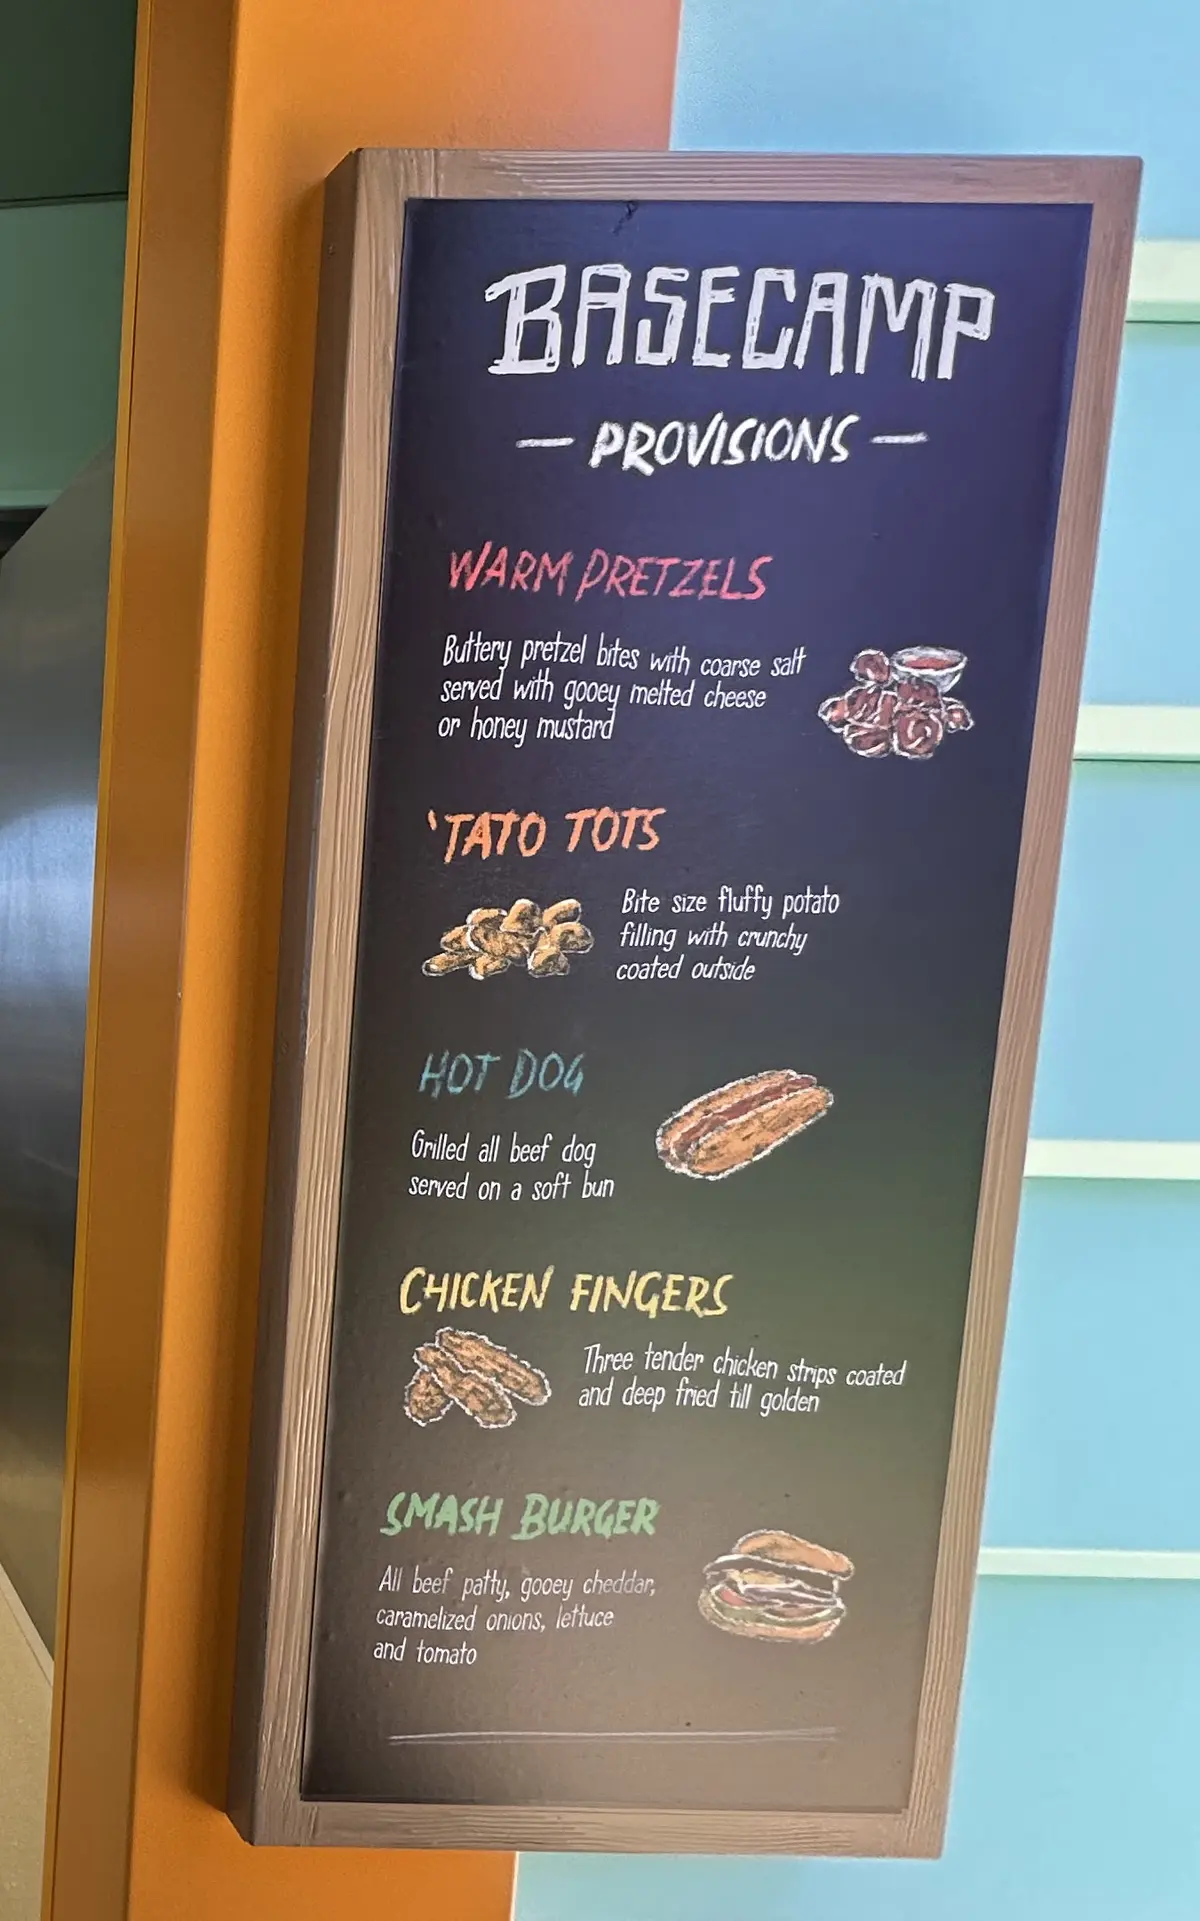 BASECAMP
— PROVISIONS —
WARM PRETZELS
Buttery pretzel bites with coarse salt
served with gooey melted cheese
or honey mustard
'TATO TOTS
Bite size fluffy potato
filling with crunchy
coated outside
HOT DOG
Grilled all beef dog
served on a soft bun
CHICKEN FINGERS
Three tender chicken strips coated
and deep fried till golden
SMASH BURGER
All beef patty, gooey cheddar,
caramelized onions, lettuce
and tomato